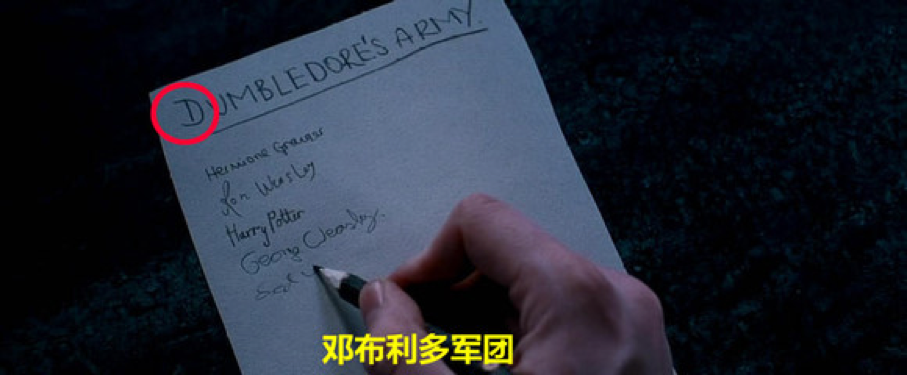 DUMBLEDORE'S ARMY.
Hermione Granger
Ron Weasley
Harry Potter
George Weasley.
邓布利多军团